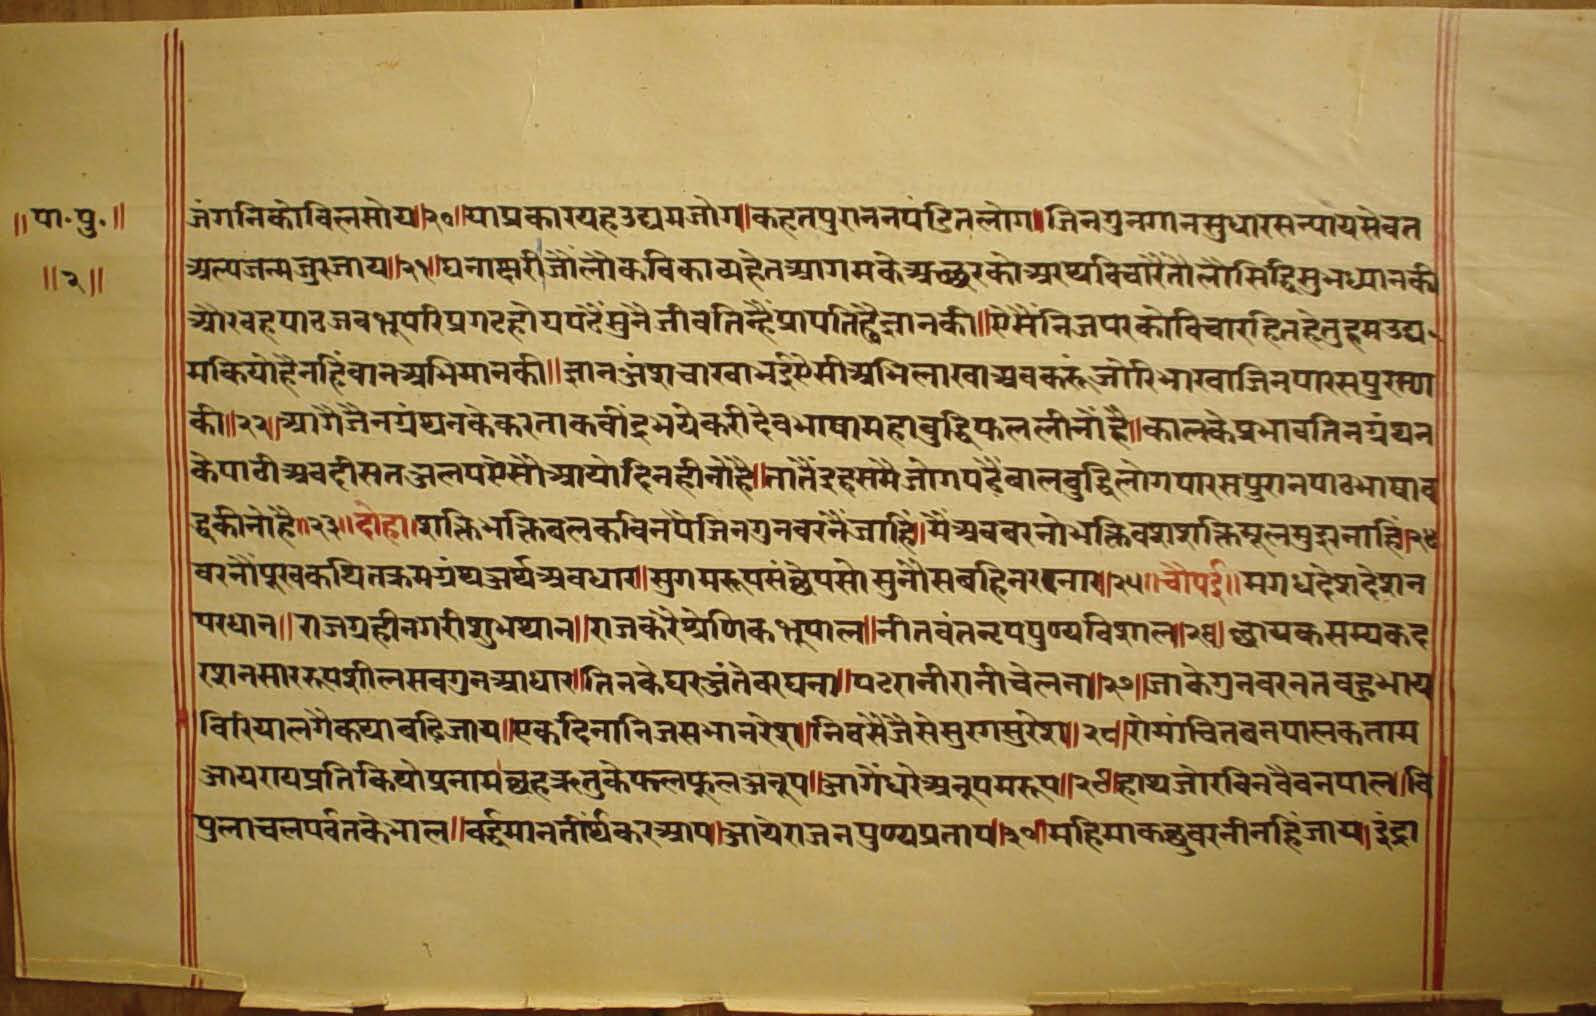 ॥पा॰पु॰॥
॥२॥
जंगनिकोविलसोय॥२०॥याप्रकारयहउद्यमजोग॥कहतपुराननपंडितलोग॥जिनगुनगानसुधारसन्यायसेवत
अल्पजन्मजुरजाय॥२१॥घनाक्षरीजौलौकविकाव्यहेतआगमकेअच्छरकोअरथविचारैतौलौसिद्धिसुभध्यानकी
औरवहपाठजबभूपरिप्रगटहोयपढैंसुनैजीवतिन्हैंप्रापतिह्वैज्ञानकी॥ऐसैंनिजपरकोविचारहितहेतुहमउद्य
मकियोहैनहिंवानअभिमानकी॥ज्ञानअंशचाखाभईऐसीअभिलाखाअबकरूंजोरिभाखाजिनपारसपुरान
की॥२२॥आगैजैनग्रंथनकेकरताकवींद्रभयेकरीदेवभाषामहाबुद्धिफललीनोंहै॥कालकेप्रभावतिनग्रंथन
केपाठीअबदीसतअलपऐसौआयोदिनहीनोंहै॥तातैंइहसमैजोगपढैंबालबुद्धिलोगपारसपुरानपाठभाषाब
द्धकीनोहै॥२३॥दोहा॥शक्तिभक्तिबलकविनपैजिनगुनबरनैंजाहिं॥मैंअबबरनोभक्तिवशशक्तिमूलमुझनाहिं॥२४
बरनौंपूरवकथितक्रमग्रंथअर्थअवधार॥सुगमरूपसंछेपसोसुनौसबहिनरनार॥२५॥चौपई॥मगधदेशदेशन
परधान॥राजग्रहीनगरीशुभथान॥राजकरैश्रेणिकभूपाल॥नीतवंतनृपपुण्यविशाल॥२६॥छायकसम्यकद
रशनसाररूपशीलसबगुनआधार॥तिनकेघरअंतेवरघना॥पटरानीरानीचेलना॥२७॥जाकेगुनबरनतबहुभाय
विरियालगैकथाबढिजाय॥एकदिनानिजसभानरेश॥निवसैजैसेसुरगसुरेश॥२८॥रोमांचितबनपालकताम
आयरायप्रतिकियोप्रनामछहऋतुकेफलफूलअनूप॥आगेंधरेअनूपमरूप॥२९॥हाथजोरविनवैबनपाल॥वि
पुलाचलपर्वतकेभाल॥वर्द्धमानतीर्थंकरआप॥आयेराजनपुण्यप्रताप॥३०॥महिमाकछुवरनीनहिंजाय॥इंद्रा